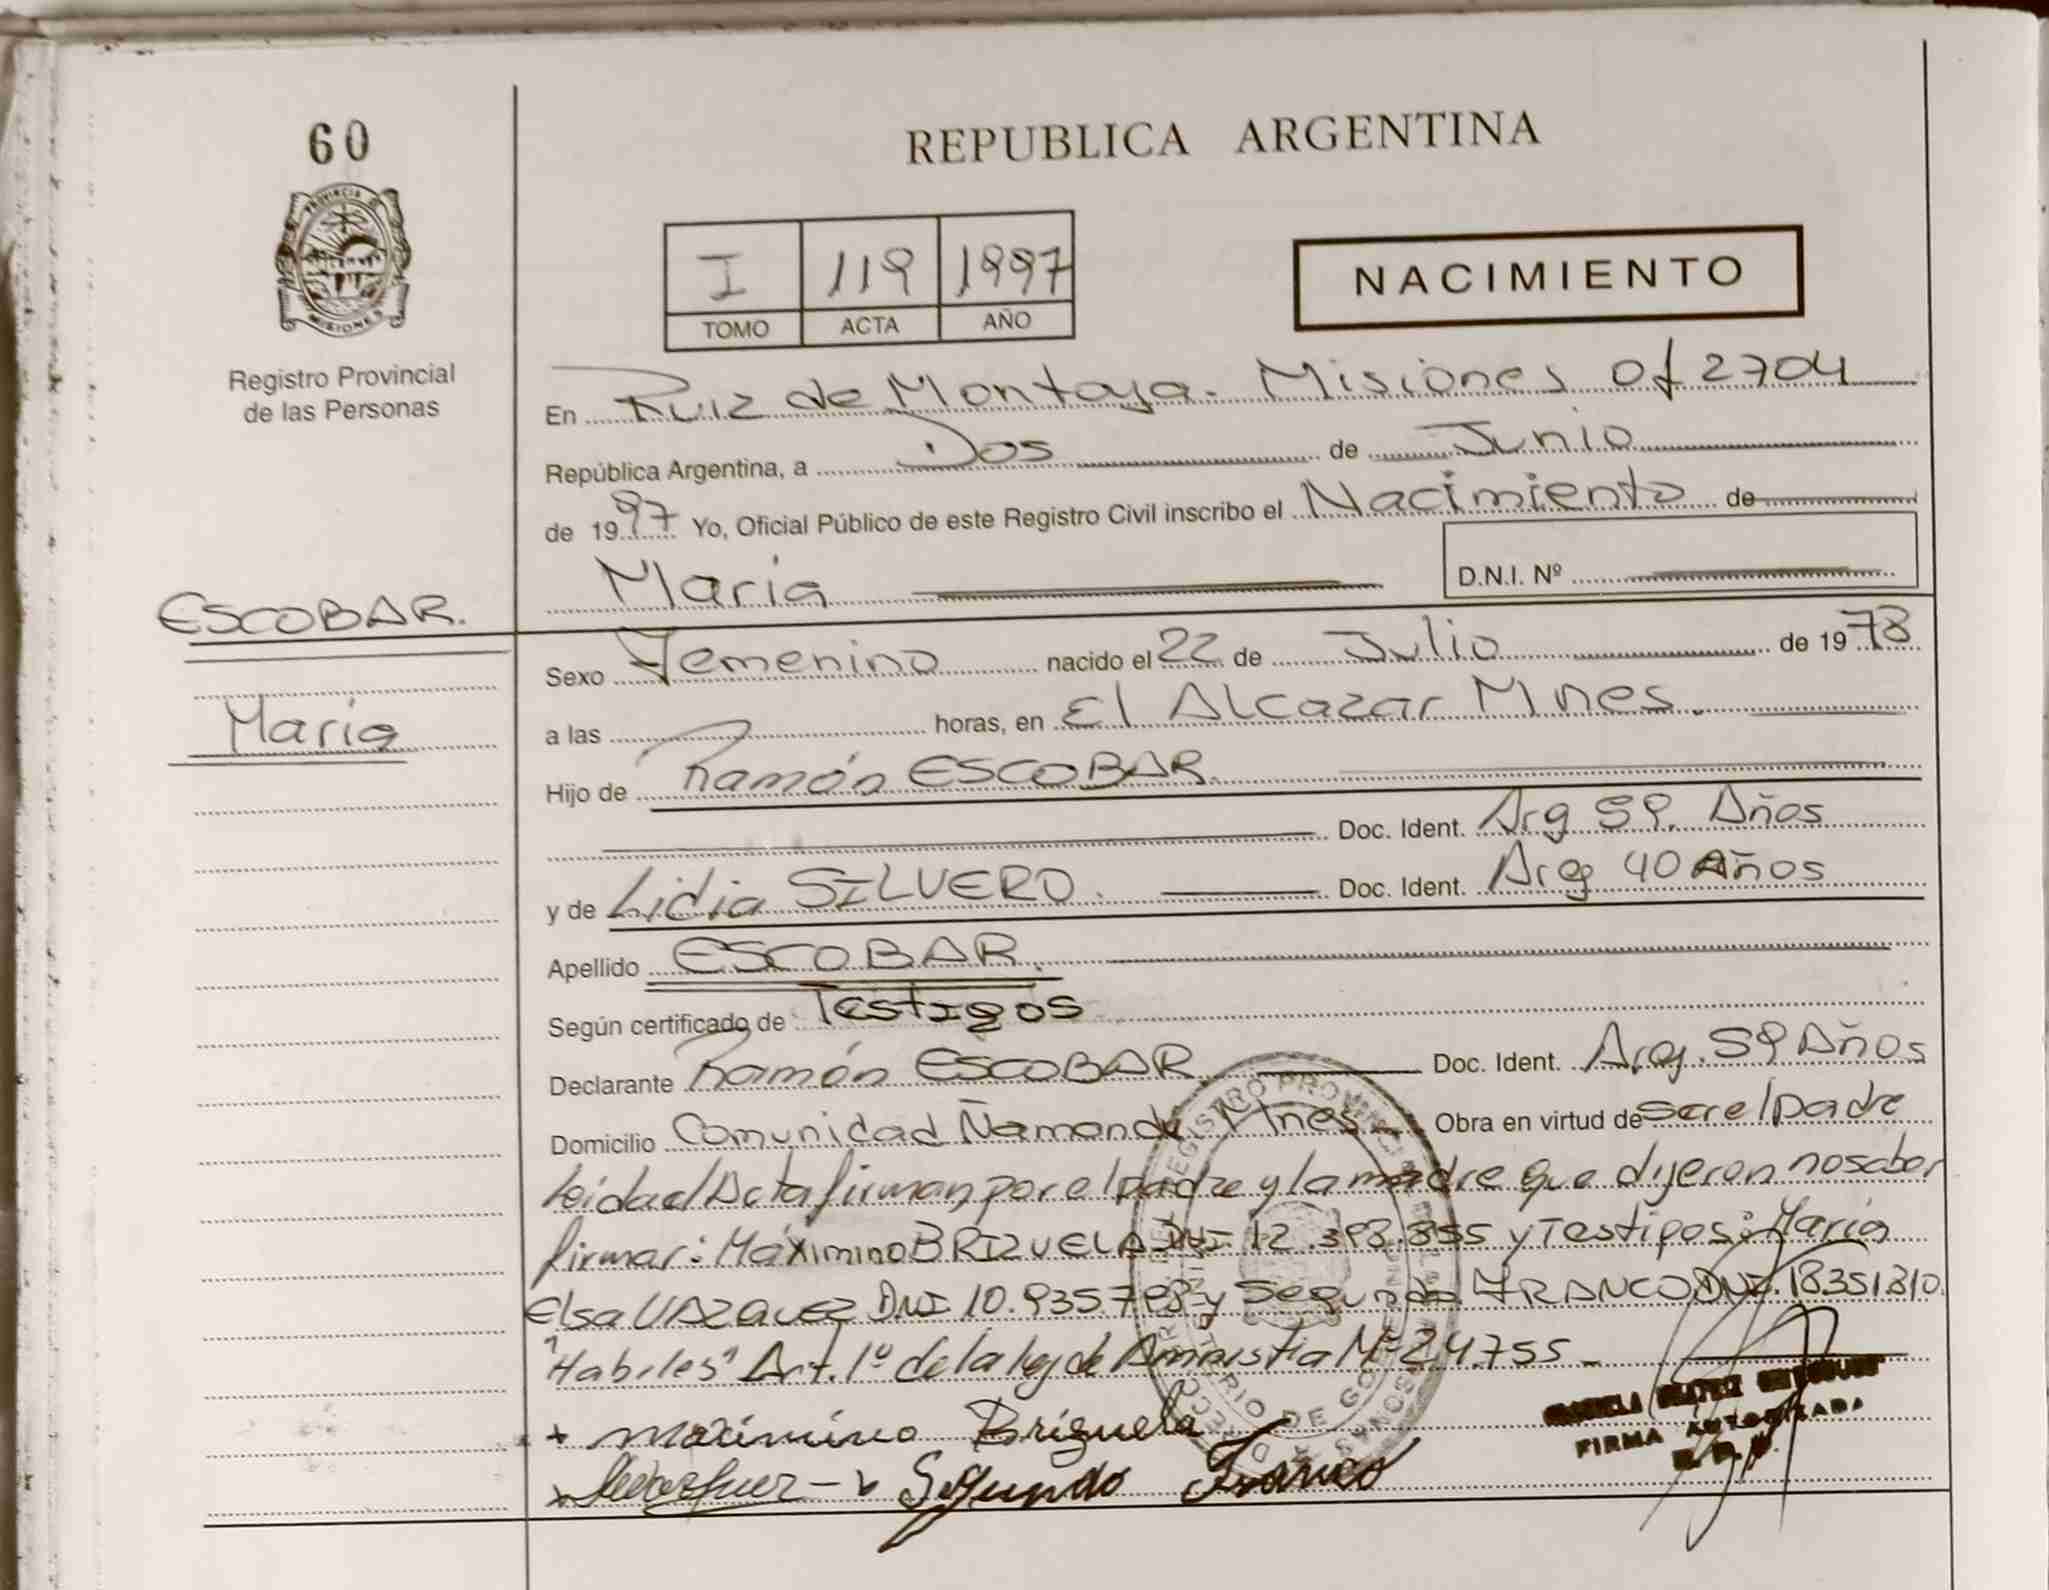 60
REPUBLICA ARGENTINA
PROVINCIA D
MISIONES
Registro Provincial
de las Personas
I 119 1997
TOMO ACTA AÑO
NACIMIENTO
En Ruiz de Montoya. Misiones of 2704
República Argentina, a Dos de Junio
de 1997 Yo, Oficial Público de este Registro Civil inscribo el Nacimiento de
María D.N.I. Nº
ESCOBAR.
María
Sexo Femenino nacido el 22 de Julio de 1978
a las horas, en El Alcazar Mnes.
Hijo de Ramón ESCOBAR.
Doc. Ident. Arg 59. Años
y de Lidia SILVERO. Doc. Ident. Arg 40 Años
Apellido ESCOBAR.
Según certificado de Testigos
Declarante Ramón ESCOBAR Doc. Ident. Arg. 59 Años
Domicilio Comunidad Ñamandú Mnes Obra en virtud de ser el padre
leida el Acta firman, por el padre y la madre que dijeron no saber
firmar: Máximino BRIZUELA DNI 12.393.855 y Testigos: María
Elsa VAZQUEZ DNI 10.935798 y Segundo FRANCO DNI. 18351310.
"Habiles" Art. 1º de la ley de Amnistia Nº 24.755 -
+ maximino Briguela
Segundo Franco
FIRMA AUTORIZADA